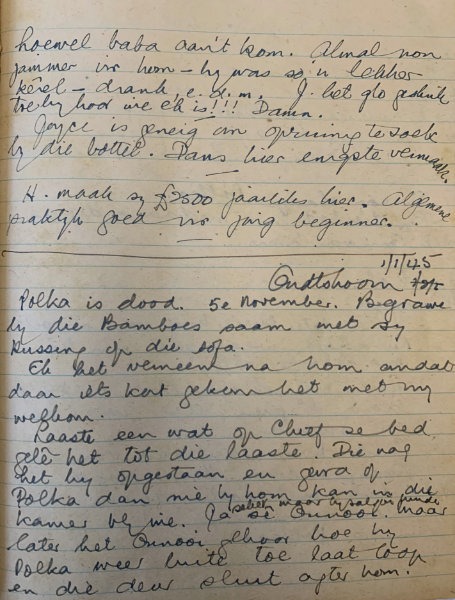 hoewel baba aan't kom. Almal non
jammer vir hom – hy was so 'n lekker
kêrel – drank, e.d.m. J. het glo geskrik
toe hy hoor wie ek is!!! Damn.
Joyce is geneig om opruiming te soek
by die bottel. Dans hier enigste vermaak.
H. maak sy £2500 jaarliks hier. Algemene
praktyk goed vir jong beginner.
1/1/45
Oudtshoorn
Polka is dood. 5e November. Begrawe
by die Bamboes saam met sy
kussing op die sofa.
Ek het verneem na hom omdat
daar iets kort gekom het met my
welkom.
Laaste een wat op Chief se bed
gelê het tot die laaste. Die nag
het hy opgestaan en gevra of
Polka dan nie by hom kan in die
kamer bly nie. Ja seker maar hy sal jou hinder
sê Ounooi maar
later het Ounooi gehoor hoe hy
Polka weer buite toe laat loop
en die deur sluit agter hom.